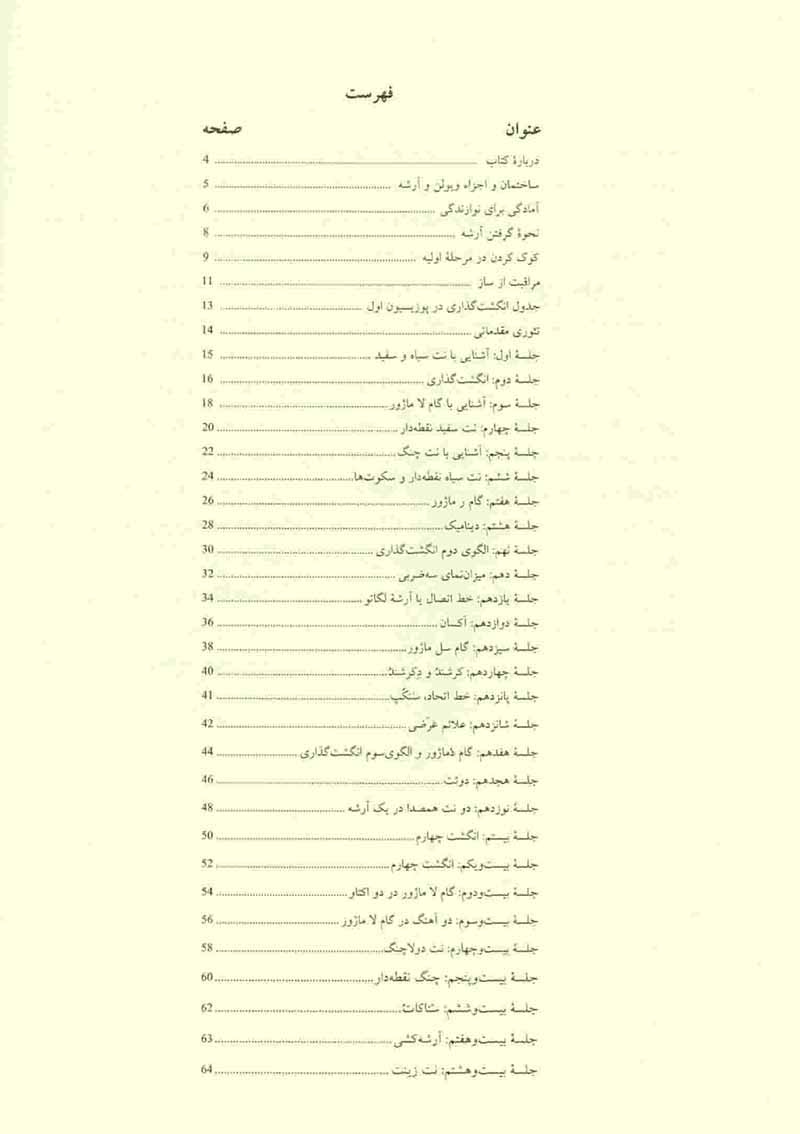 فهرست
عنوان صفحه
دربارهٔ کتاب ........ 4
ساختمان و اجزاء ویولن و آرشه ........ 5
آمادگی برای نوازندگی ........ 6
نحوهٔ گرفتن آرشه ........ 8
کوک کردن در مرحلهٔ اولیه ........ 9
مراقبت از ساز ........ 11
جدول انگشت‌گذاری در پوزیسیون اول ........ 13
تئوری مقدماتی ........ 14
جلسهٔ اول: آشنایی با نت سیاه و سفید ........ 15
جلسهٔ دوم: انگشت‌گذاری ........ 16
جلسهٔ سوم: آشنایی با گام لا ماژور ........ 18
جلسهٔ چهارم: نت سفید نقطه‌دار ........ 20
جلسهٔ پنجم: آشنایی با نت چنگ ........ 22
جلسهٔ ششم: نت سیاه نقطه‌دار و سکوت‌ها ........ 24
جلسهٔ هفتم: گام ر ماژور ........ 26
جلسهٔ هشتم: دینامیک ........ 28
جلسهٔ نهم: الگوی دوم انگشت‌گذاری ........ 30
جلسهٔ دهم: میزان‌نمای سه‌ضربی ........ 32
جلسهٔ یازدهم: خط اتصال یا آرشهٔ لگاتو ........ 34
جلسهٔ دوازدهم: آکسان ........ 36
جلسهٔ سیزدهم: گام سل ماژور ........ 38
جلسهٔ چهاردهم: کرشندُ و دکرشندُ ........ 40
جلسهٔ پانزدهم: خط اتحاد، سنکُپ ........ 41
جلسهٔ شانزدهم: علائم عَرَضی ........ 42
جلسهٔ هفدهم: گام دُماژور و الگوی‌سوم انگشت‌گذاری ........ 44
جلسهٔ هجدهم: دوئت ........ 46
جلسهٔ نوزدهم: دو نت همصدا در یک آرشه ........ 48
جلسهٔ بیستم: انگشت چهارم ........ 50
جلسهٔ بیست‌ویکم: انگشت چهارم ........ 52
جلسهٔ بیست‌ودوم: گام لا ماژور در دو اکتاو ........ 54
جلسهٔ بیست‌وسوم: دو آهنگ در گام لا ماژور ........ 56
جلسهٔ بیست‌وچهارم: نت دولاچنگ ........ 58
جلسهٔ بیست‌وپنجم: چنگ نقطه‌دار ........ 60
جلسهٔ بیست‌وششم: ستاکاتُ ........ 62
جلسهٔ بیست‌وهفتم: آرشه‌کشی ........ 63
جلسهٔ بیست‌وهشتم: نت زینت ........ 64